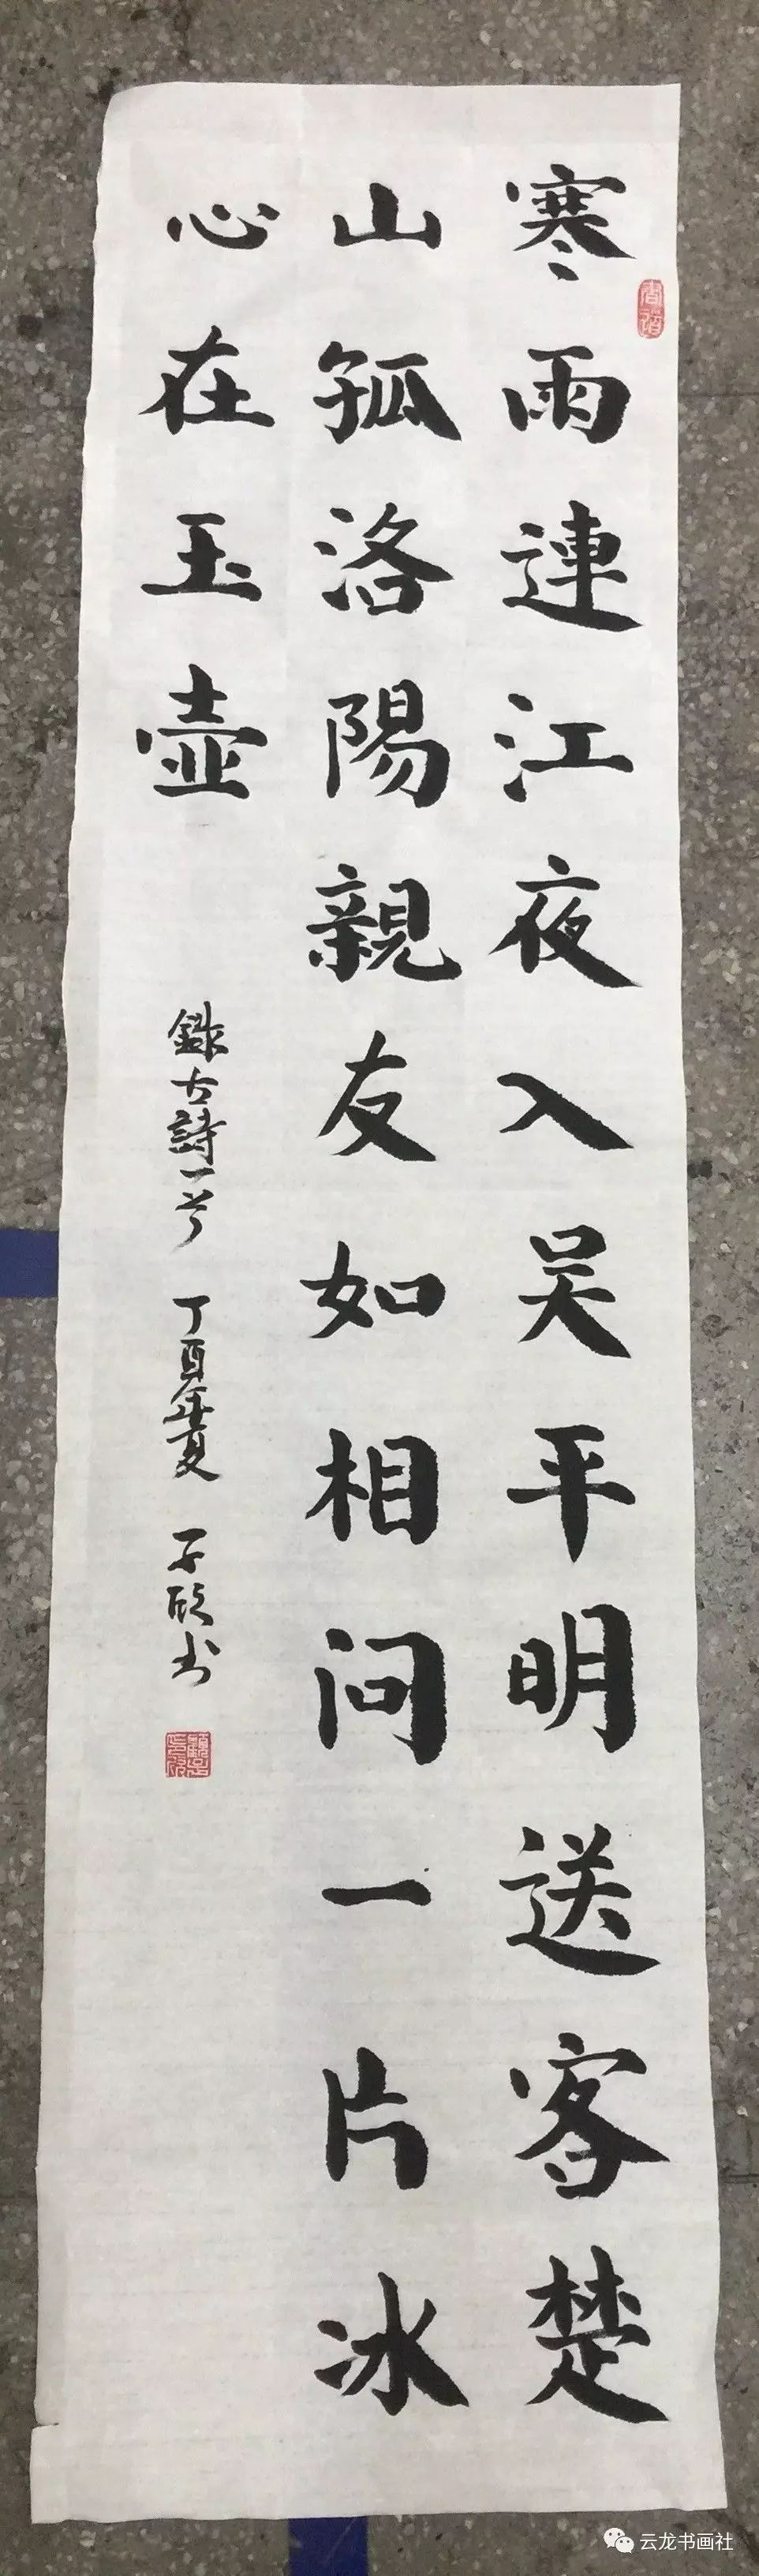 寒雨連江夜入吴平明送客楚
山孤洛陽親友如相问一片冰
心在玉壶
錄古詩一首 丁酉年夏 子欣书
云龙书画社